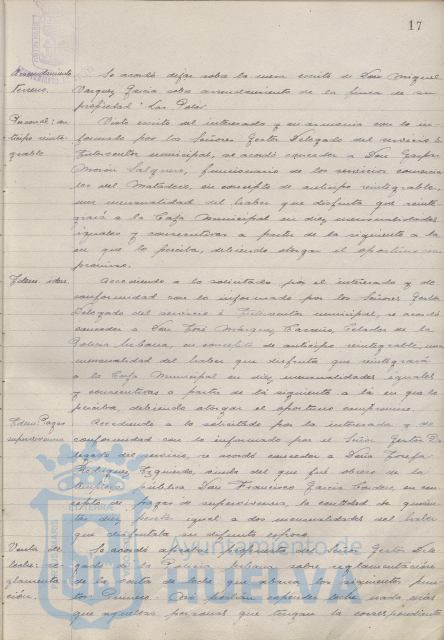 17
Arrendamiento
Terreno.
Se acordó dejar sobre la mesa escrito de Don Miguel
Vazquez Garcia sobre arrendamiento de la finca de su
propiedad "Los Poles"
Personal: an-
ticipo reinte-
grable
Visto escrito del interesado y en armonia con lo in-
formado por los Señores Gestor Delegado del servicio e
Interventor municipal, se acordó conceder a Don Gaspar
Morón Salguero, funcionario de los servicios
del Matadero, en concepto de anticipo reintegrable,
una mensualidad del haber que disfruta que reinte-
grará a la Caja Municipal en diez mensualidades
iguales y consecutivas a partir de la siguiente a la
en que lo perciba, debiendo otorgar el oportuno com-
promiso.
Idem. idem.
Accediendo a lo solicitado por el interesado y de
conformidad con lo informado por los Señores Gestor
Delegado del servicio e Interventor municipal, se acordó
conceder a Don José Márquez Carreño, Celador de la
Policia Urbana, en concepto de anticipo reintegrable, una
mensualidad del haber que disfruta que reintegrará
a la Caja Municipal en diez mensualidades iguales
y consecutivas a partir de la siguiente a la en que lo
perciba, debiendo otorgar el oportuno compromiso.
Idem: Pagas
supervivencia
Accediendo a lo solicitado por la interesada y de
conformidad con lo informado por el Señor Gestor De-
legado del servicio, se acordó conceder a Doña Josefa
Rodriguez Izquierdo, viuda del que fué obrero de la
pública Don Francisco Garcia Cordero, en con-
cepto de pagas de supervivencia, la cantidad de quinien-
tas diez pesetas igual a dos mensualidades del haber
que disfrutaba su difunto esposo.
Venta de
leche: re-
glamenta-
ción.
Se acordó aprobar propuesta del Señor Gestor Dele-
gado de la Policia Urbana sobre reglamentación
de la venta de leche que abarca los siguientes pun-
tos: Primero. Solo podrán expender leche
que aquellas personas que tengan la correspondiente
Ayuntamiento de